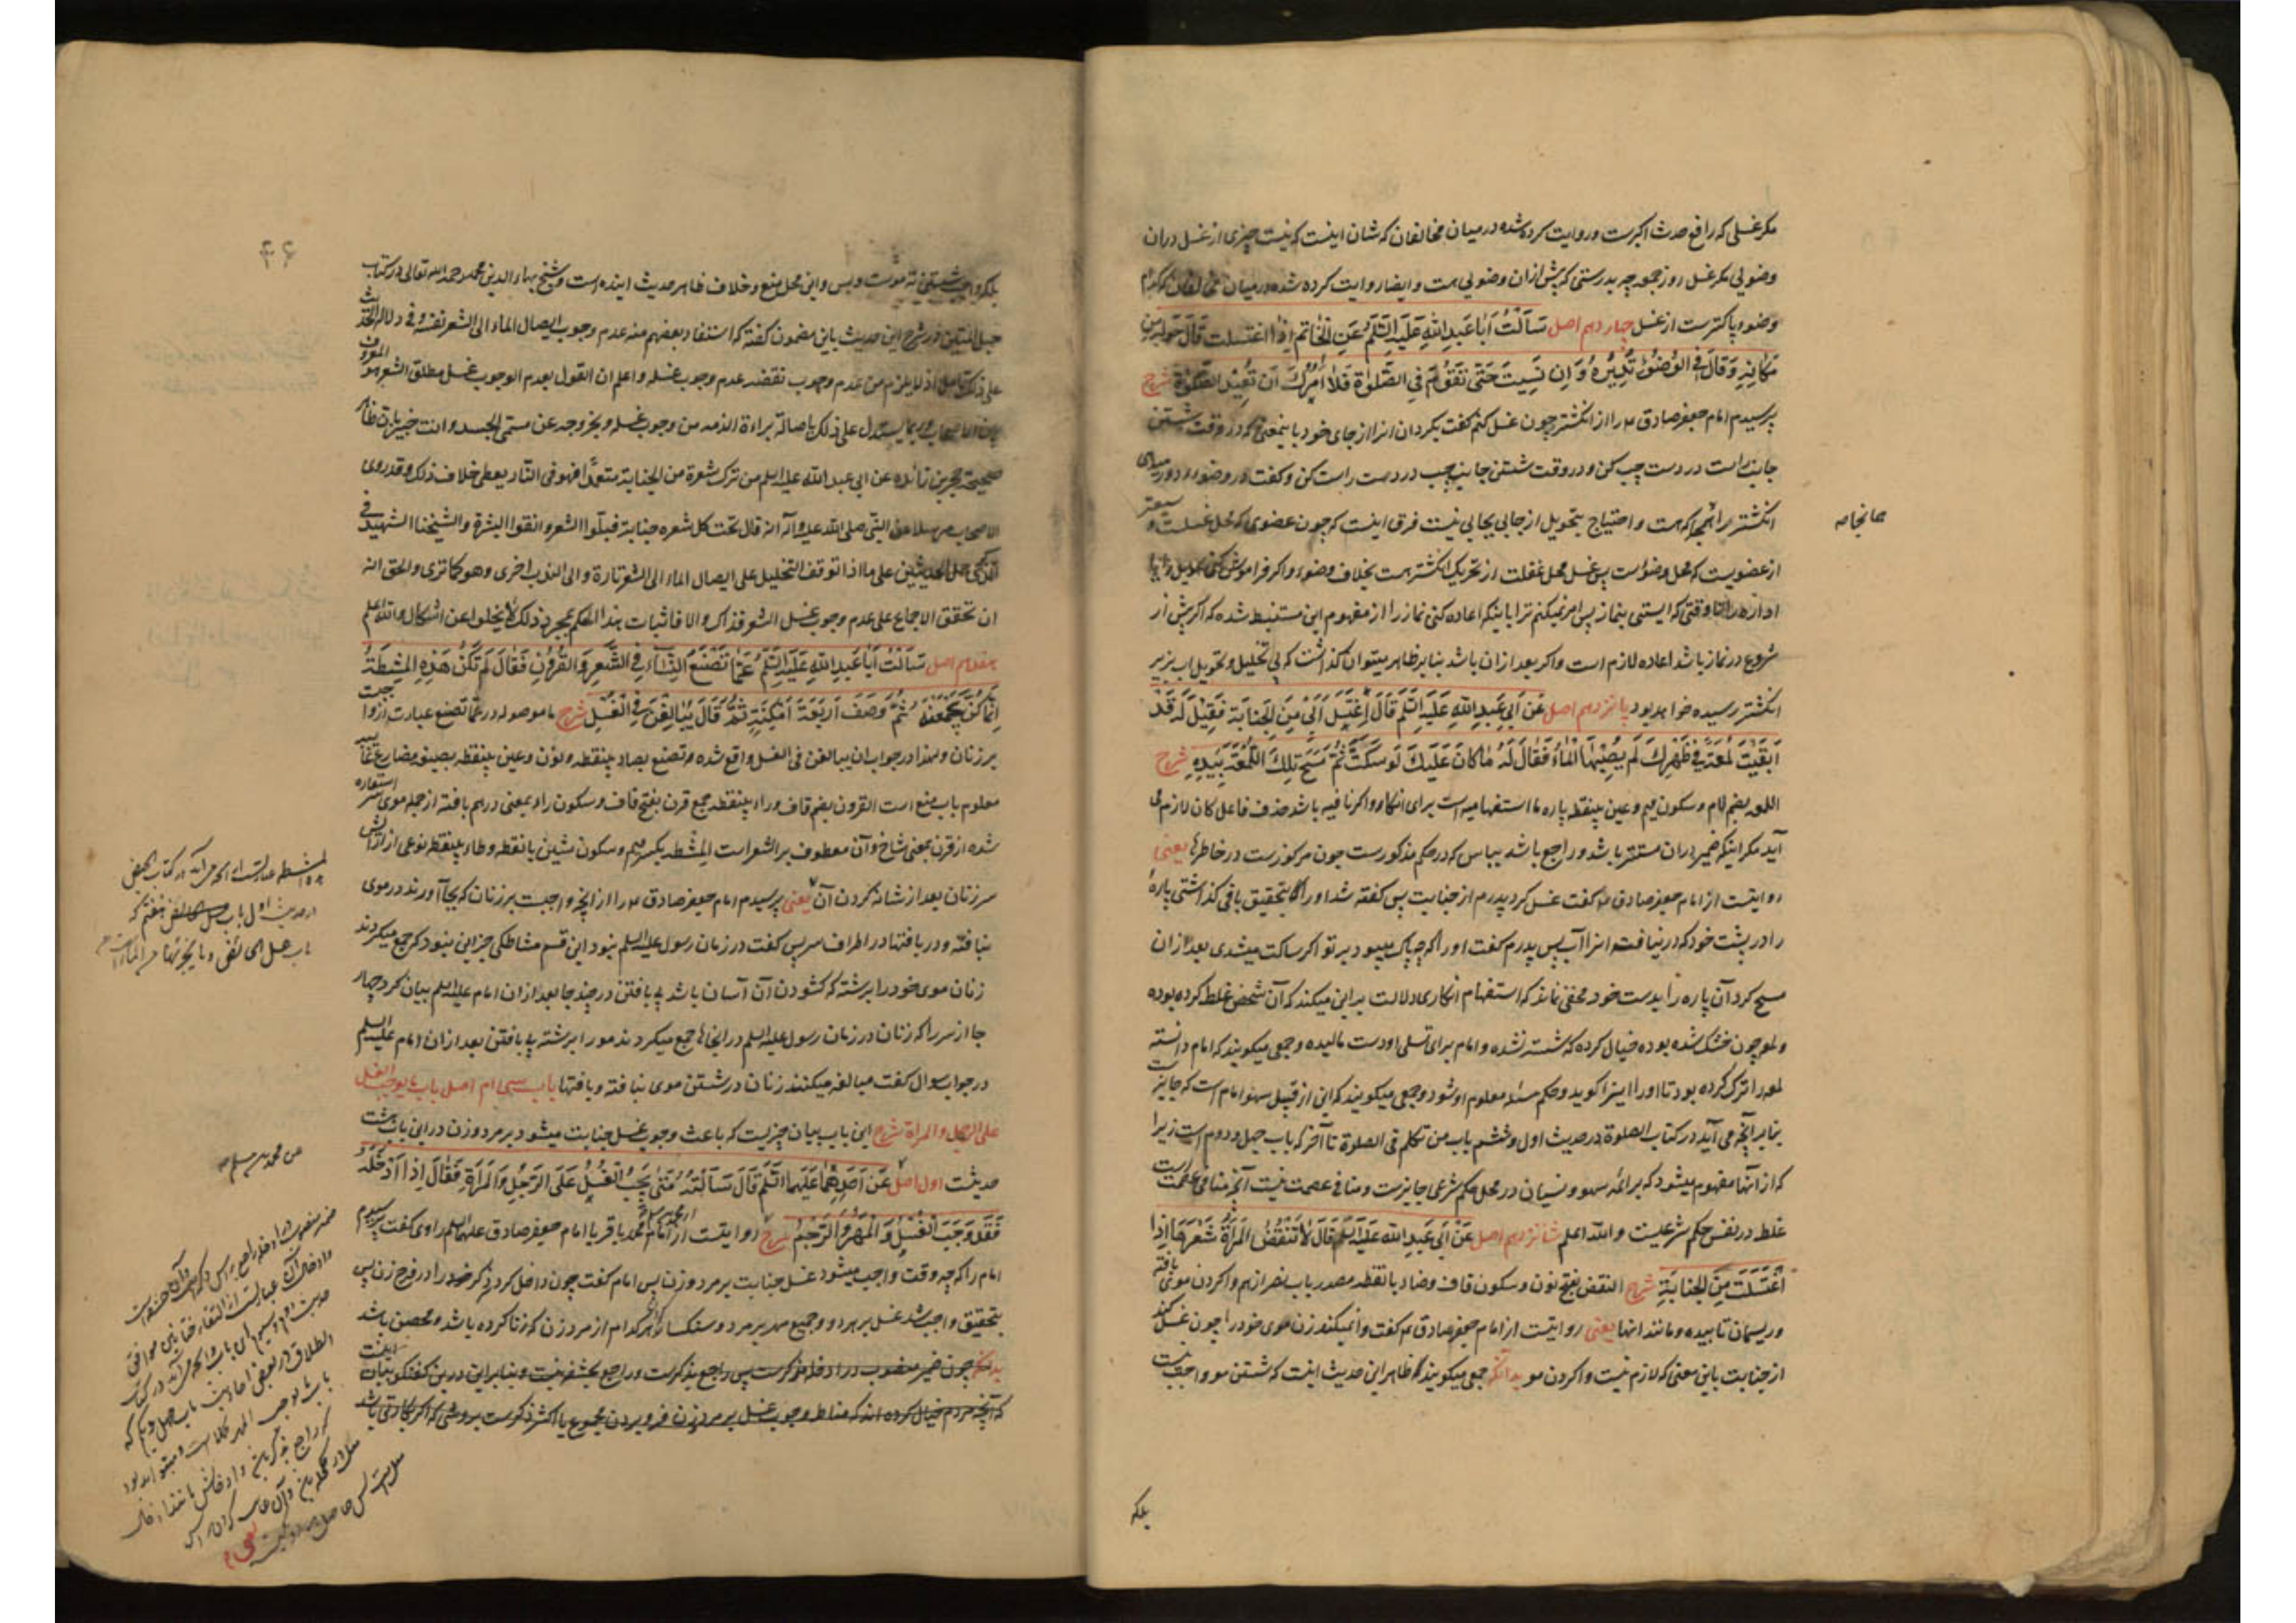 مکر غسلی که رافع حدث اکبرست و روایت کرده شده در میان مخالفان که شان اینست که نیست چیزی از غسل دران
وضوئی مکر غسل روز جمعه چه بدرستی که پیش ازان وضوئی هست و ایضا روایت کرده شده در میان مخالفان که کدام
وضوء پاکترست از غسل چهاردهم اصل سَأَلْتُ أَبَا عَبْدِ اللهِ عَلَيْهِ السَّلَمُ عَنِ الْخَاتَمِ إِذَا اغْتَسَلْتُ قَالَ حَوِّلْهُ مِنْ
مَكَانِهِ وَقَالَ فِي الْوُضُوءِ تُدِيرُهُ وَإِنْ نَسِيتَ حَتَّى تَقُومَ فِي الصَّلَوةِ فَلَا آمُرُكَ أَنْ تُعِيدَ الصَّلَوةَ شرح
پرسیدم امام جعفر صادق ع م را از انکشتر چون غسل کنم کفت بکردان انرا از جای خود باینمعنی که در وقت شستن
جانب راست در دست چپ کن و در وقت شستن جانب چپ در دست راست کن و کفت در وضوء دور میدهی
انکشتر را همانجا که هست و احتیاج بتحویل از جایی بجایی نیست فرق اینست که چون عضوی که محل غسلست
از عضویست که محل وضوء است پس غسل محل غفلت از تحریک انکشتر هست بخلاف وضوء و اکر فراموش کنی تحویل و
اداره را تا وقتی که ایستی بنماز پس امر نمیکنم ترا باینکه اعاده کنی نماز را از مفهوم این مستنبط شده که اکر پیش از
شروع در نماز باشد اعاده لازم است و اکر بعد ازان باشد بنابر ظاهر میتوان کذاشت که بی تخلیل و تحویل اب بزیر
انکشتر رسیده خواهد بود پانزدهم اصل عَنْ أَبِي عَبْدِ اللهِ عَلَيْهِ السَّلَمُ قَالَ اغْتَسَلَ أَبِي مِنَ الْجَنَابَةِ فَقِيلَ لَهُ قَدْ
أَبْقَيْتَ لُمْعَةً فِي ظَهْرِكَ لَمْ يُصِبْهَا الْمَاءُ فَقَالَ لَهُ مَا كَانَ عَلَيْكَ لَوْ سَكَتَّ ثُمَّ مَسَحَ تِلْكَ اللُّمْعَةَ بِيَدِهِ شرح
اللمعه بضم لام و سکون میم و عین بینقطه پاره ما استفهامیه است برای انکار و اکر نافیه باشد حذف فاعل کان لازم می
آید مکر اینکه ضمیر دران مستتر باشد و راجع باشد بباس که در حکم مذکورست چون مرکوزست در خاطرها یعنی
روایتست از امام جعفر صادق ع م کفت غسل کرد پدرم از جنابت پس کفته شد او را که بتحقیق باقی کذاشتی پاره
را در پشت خود که در نیافت انرا آب پس پدرم کفت او را که چه باک میبود بر تو اکر ساکت میشدی بعد ازان
مسح کرد آن پاره را بدست خود مخفی نماند که استفهام انکاری دلالت براین میکند که آن شخص غلط کرده بوده
و لمعه چون خشک شده بوده خیال کرده که شسته نشده و امام برای تسلی او دست مالیده و جمعی میکویند که امام دانسته
لمعه را ترک کرده بود تا او را اینرا کوید و حکم مسئله معلوم او شود و جمعی میکویند که این از قبیل سهو امام است که جایز
بنابر آنچه می آید در کتاب الصلوة در حدیث اول و ششم باب من تکلم فی الصلوة تا آخر که باب چهل و دوم است زیرا
که از آنها مفهوم میشود که برائمه سهو و نسیان در محل حکم شرعی جایزست و منافی عصمت نیست آنچه منافی عصمت است
غلط در نفس حکم شرعیست والله اعلم شانزدهم اصل عَنْ أَبِي عَبْدِ اللهِ عَلَيْهِ السَّلَمُ قَالَ لَا تَنْقُضُ الْمَرْأَةُ شَعْرَهَا إِذَا
اغْتَسَلَتْ مِنَ الْجَنَابَةِ شرح النقض بفتح نون و سکون قاف و ضاد بانقطه مصدر باب نصر ازهم واکردن موی بافته
و ریسمان تابیده و مانند انها یعنی روایتست از امام جعفر صادق ع م کفت وا نمیکند زن موی خود را چون غسل کند
از جنابت باین معنی که لازم نیست واکردن مو بدانکه جمعی میکویند که ظاهر این حدیث اینست که شستن مو واجب نیست
بلکه
بلکه واجب شستن ته موست و بس و این محل منع و خلاف ظاهر حدیث آینده است و شیخ بهاء الدین محمد رحمه الله تعالی در کتاب
حبل المتین در شرح این حدیث باین مضمون کفته که استفاد بعضهم منه عدم وجوب ایصال الماء الی الشعر نفسه و فی دلالة الحدیث
علی ذلک تامل اذ لا یلزم من عدم وجوب نقضه عدم وجوب غسله و اعلم ان القول بعدم الوجوب غسل مطلق الشعر هو المعروف
بین الاصحاب و ربما یستدل علی ذلک باصالة براءة الذمه من وجوب غسله و بخروجه عن مسمّی الجسد و انت خبیر بان ظاهر
صحیحة حجر بن زائده عن ابی عبد الله علیه السلم من ترک شعرة من الجنابة متعمّدا فهو فی النار یعطی خلاف ذلک و قد روی
الاصحاب مرسلا عن النبی صلی الله علیه و آله انه قال تحت کل شعره جنابة فبلّوا الشعر و انقوا البشرة و لشیخنا الشهید فی
الذکری حمل الحدیثین علی ما اذا توقف التخلیل علی ایصال الماء الی الشعر تارة و الی الندب اخری و هو کما تری و الحق انه
ان تحقق الاجماع علی عدم وجوب غسل الشعر فذاک و الا فاثبات هذا الحکم بمجرد ذلک لا یخلوا عن اشکال والله اعلم
هفدهم اصل سَأَلْتُ أَبَا عَبْدِ اللهِ عَلَيْهِ السَّلَمُ عَمَّا تَصْنَعُ النِّسَاءُ فِي الشَّعْرِ وَالْقُرُونِ فَقَالَ لَمْ تَكُنْ هَذِهِ الْمِشْطَةُ
إِنَّمَا كُنَّ يَجْمَعْنَهُ ثُمَّ وَصَفَ أَرْبَعَةَ أَمْكِنَةٍ ثُمَّ قَالَ يُبَالِغْنَ فِي الْغَسْلِ شرح ما موصوله در عمّا تصنع عبارت از واجبت
بر زنان و لهذا در جواب ان یبالغن فی الغسل واقع شده و تصنع بصاد بینقطه و نون و عین بینقطه بصیغه مضارع غائبه
معلوم باب منع است القرون بضم قاف و راء بینقطه جمع قرن بفتح قاف و سکون راء بمعنی درهم بافته از جمله موی سر استعاره
شده از قرن بمعنی شاخ و آن معطوف بر الشعر است المشطه بکسر میم و سکون شین بانقطه و طاء بینقطه نوعی از ارایش
سر زنان بعد از شانه کردن آن یعنی پرسیدم امام جعفر صادق ع م را از انچه واجبست بر زنان که بجا آورند در موی
نبافته و در بافتها در اطراف سر پس کفت در زمان رسول علیه السلم نبود این قسم مشاطکی جز این نبود که جمع میکردند
زنان موی خود را برشته که کشودن آن آسان باشد بی بافتن در چند جا بعد ازان امام علیه السلم بیان کرد چهار
جا از سر را که زنان در زمان رسول علیه السلم در انجا ها جمع میکردند مو را برشته بی بافتن بعد ازان امام علیه السلم
در جواب سوال کفت مبالغه میکنند زنان در شستن موی نبافته و بافتها باب سی ام اصل باب ما یوجب الغسل
علی الرجل و المراة شرح این باب بیان چیزیست که باعث وجوب غسل جنابت میشود بر مرد و زن در این باب هشت
حدیثست اول اصل عَنْ أَحَدِهِمَا عَلَيْهِمَا السَّلَمُ قَالَ سَأَلْتُهُ مَتَى يَجِبُ الْغُسْلُ عَلَى الرَّجُلِ وَالْمَرْأَةِ فَقَالَ إِذَا أَدْخَلَهُ
فَقَدْ وَجَبَ الْغُسْلُ وَالْمَهْرُ وَالرَّجْمُ شرح روایتست از امام محمد باقر یا امام جعفر صادق علیهما السلم راوی کفت پرسیدم
امام را که چه وقت واجب میشود غسل جنابت بر مرد و زن پس امام کفت چون داخل کرد ذکر خود را در فرج زن پس
بتحقیق واجب شد غسل بر هر دو و جمیع مهر بر مرد و سنکسار هر کدام از مرد زن که زنا کرده باشد و محصن باشد
بدانکه چون ضمیر منصوب در ادخله مذکرست پس راجع بذکرست و راجع بحشفه نیست و بنابراین درین کفتکو بیان اینست
که آنچه مردم خیال کرده اند که مناط وجوب غسل بر مرد زن فرو بردن مجموع یا اکثر ذکرست بروشی که اکر